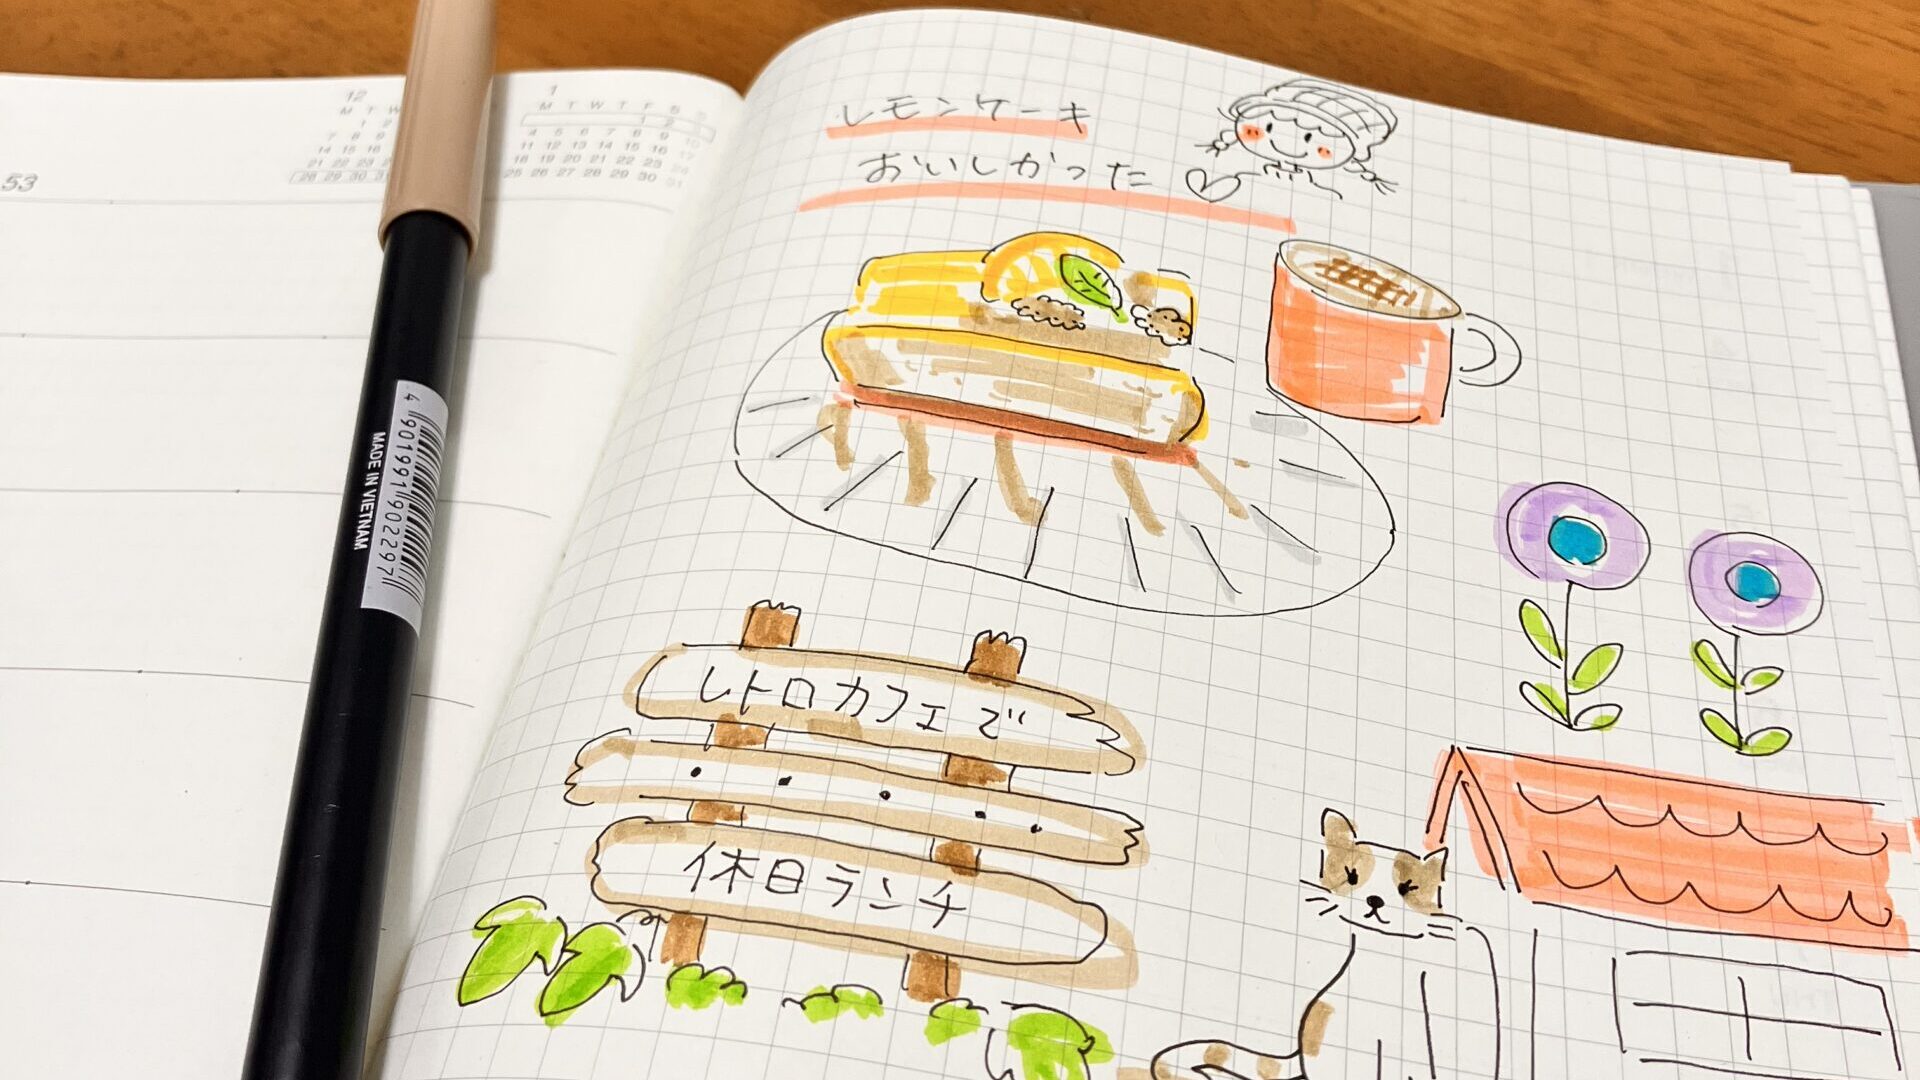 53
12
M T W
1 2
7 8 9
14 15 16
21 22 23
28 29 30 31
1
M T W T F S S
1 2 3
4 5 6 7 8 9 10
11 12 13 14 15 16 17
18 19 20 21 22 23 24
25 26 27 28 29 30 31
4 901991 902297
MADE IN VIETNAM
レモンケーキ
おいしかった
レトロカフェで
休日ランチ